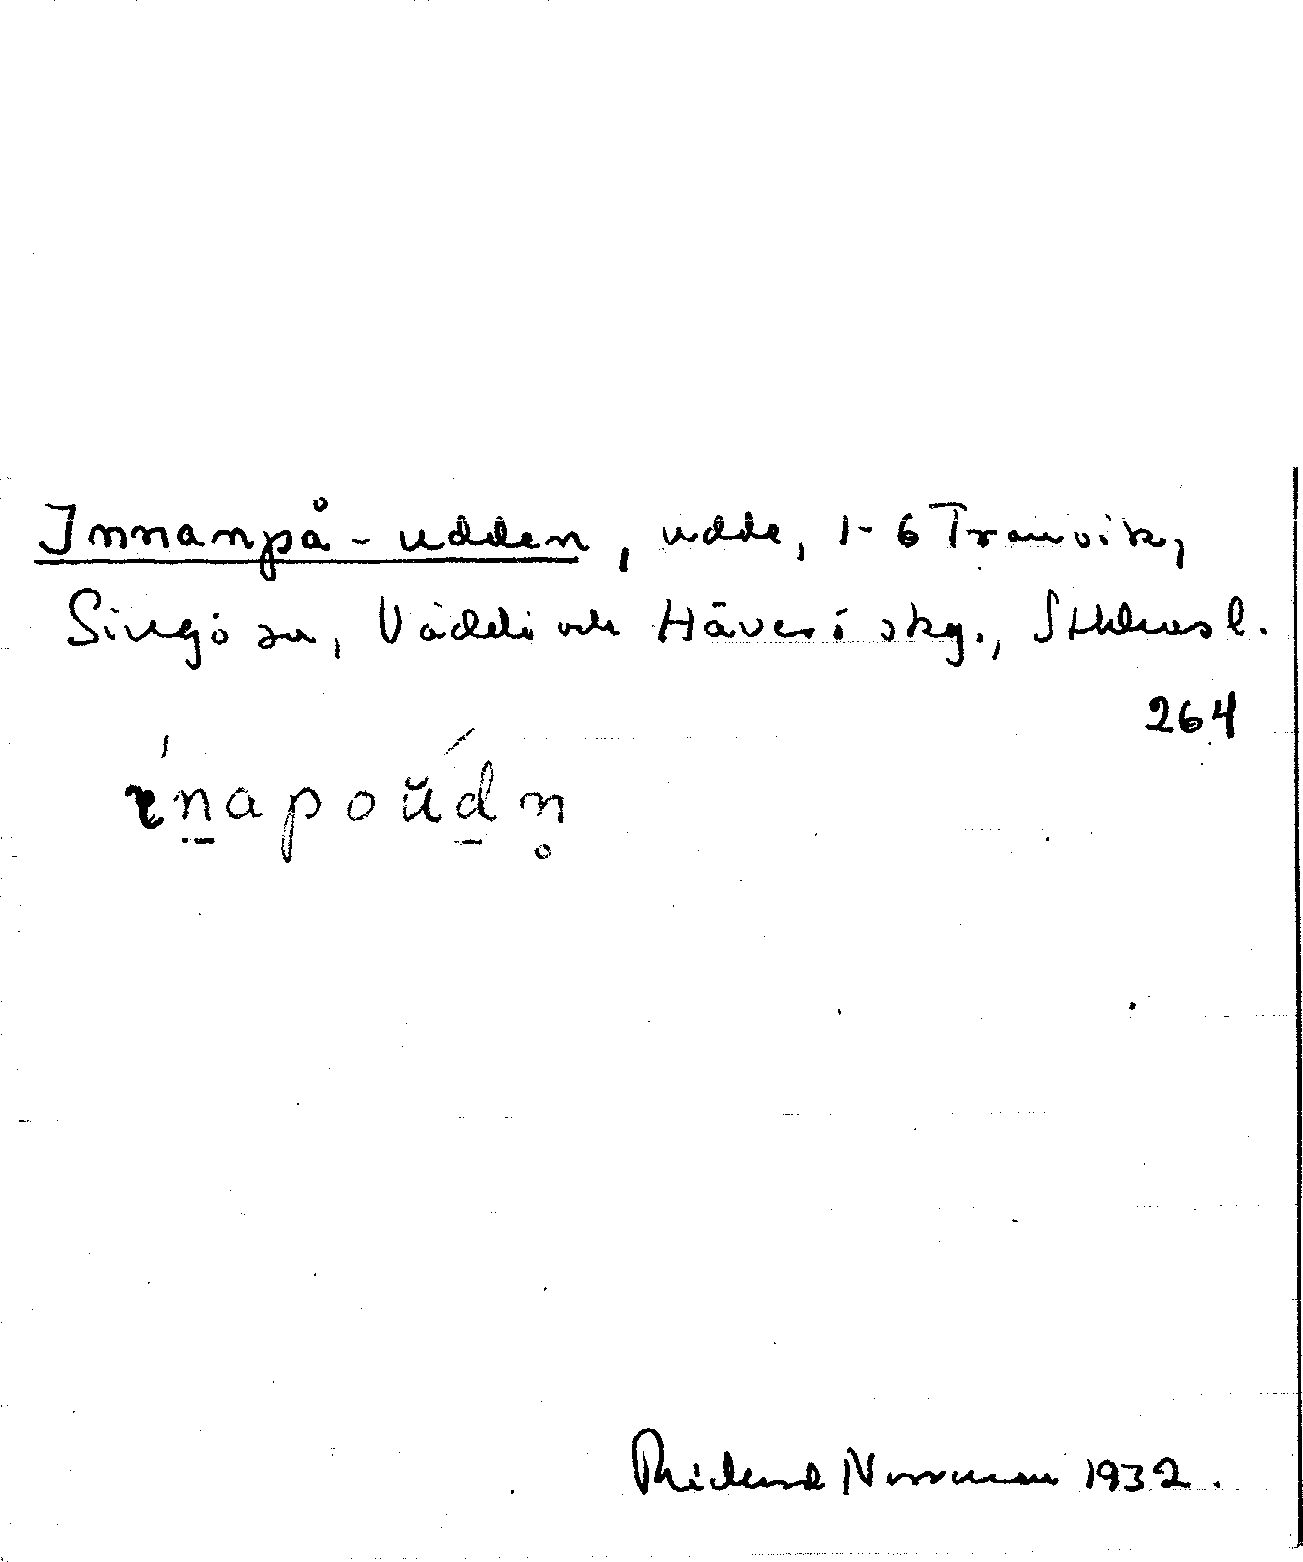 Innanpå-udden, udde, 1-6 Tranvik,
Singö sn, Väddö och Häverö skg., Sthlms l.
264
ɩ́n̠apoŭd̠́n̥
Rickard Norrman 1932.